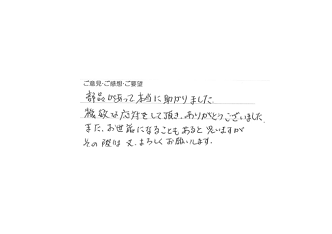 ご意見・ご感想・ご要望
部品があって本当に助かりました
敏な応対をして頂き、ありがとうございました
また、お世話になることもあると思いますが
その際は又、よろしくお願いします。